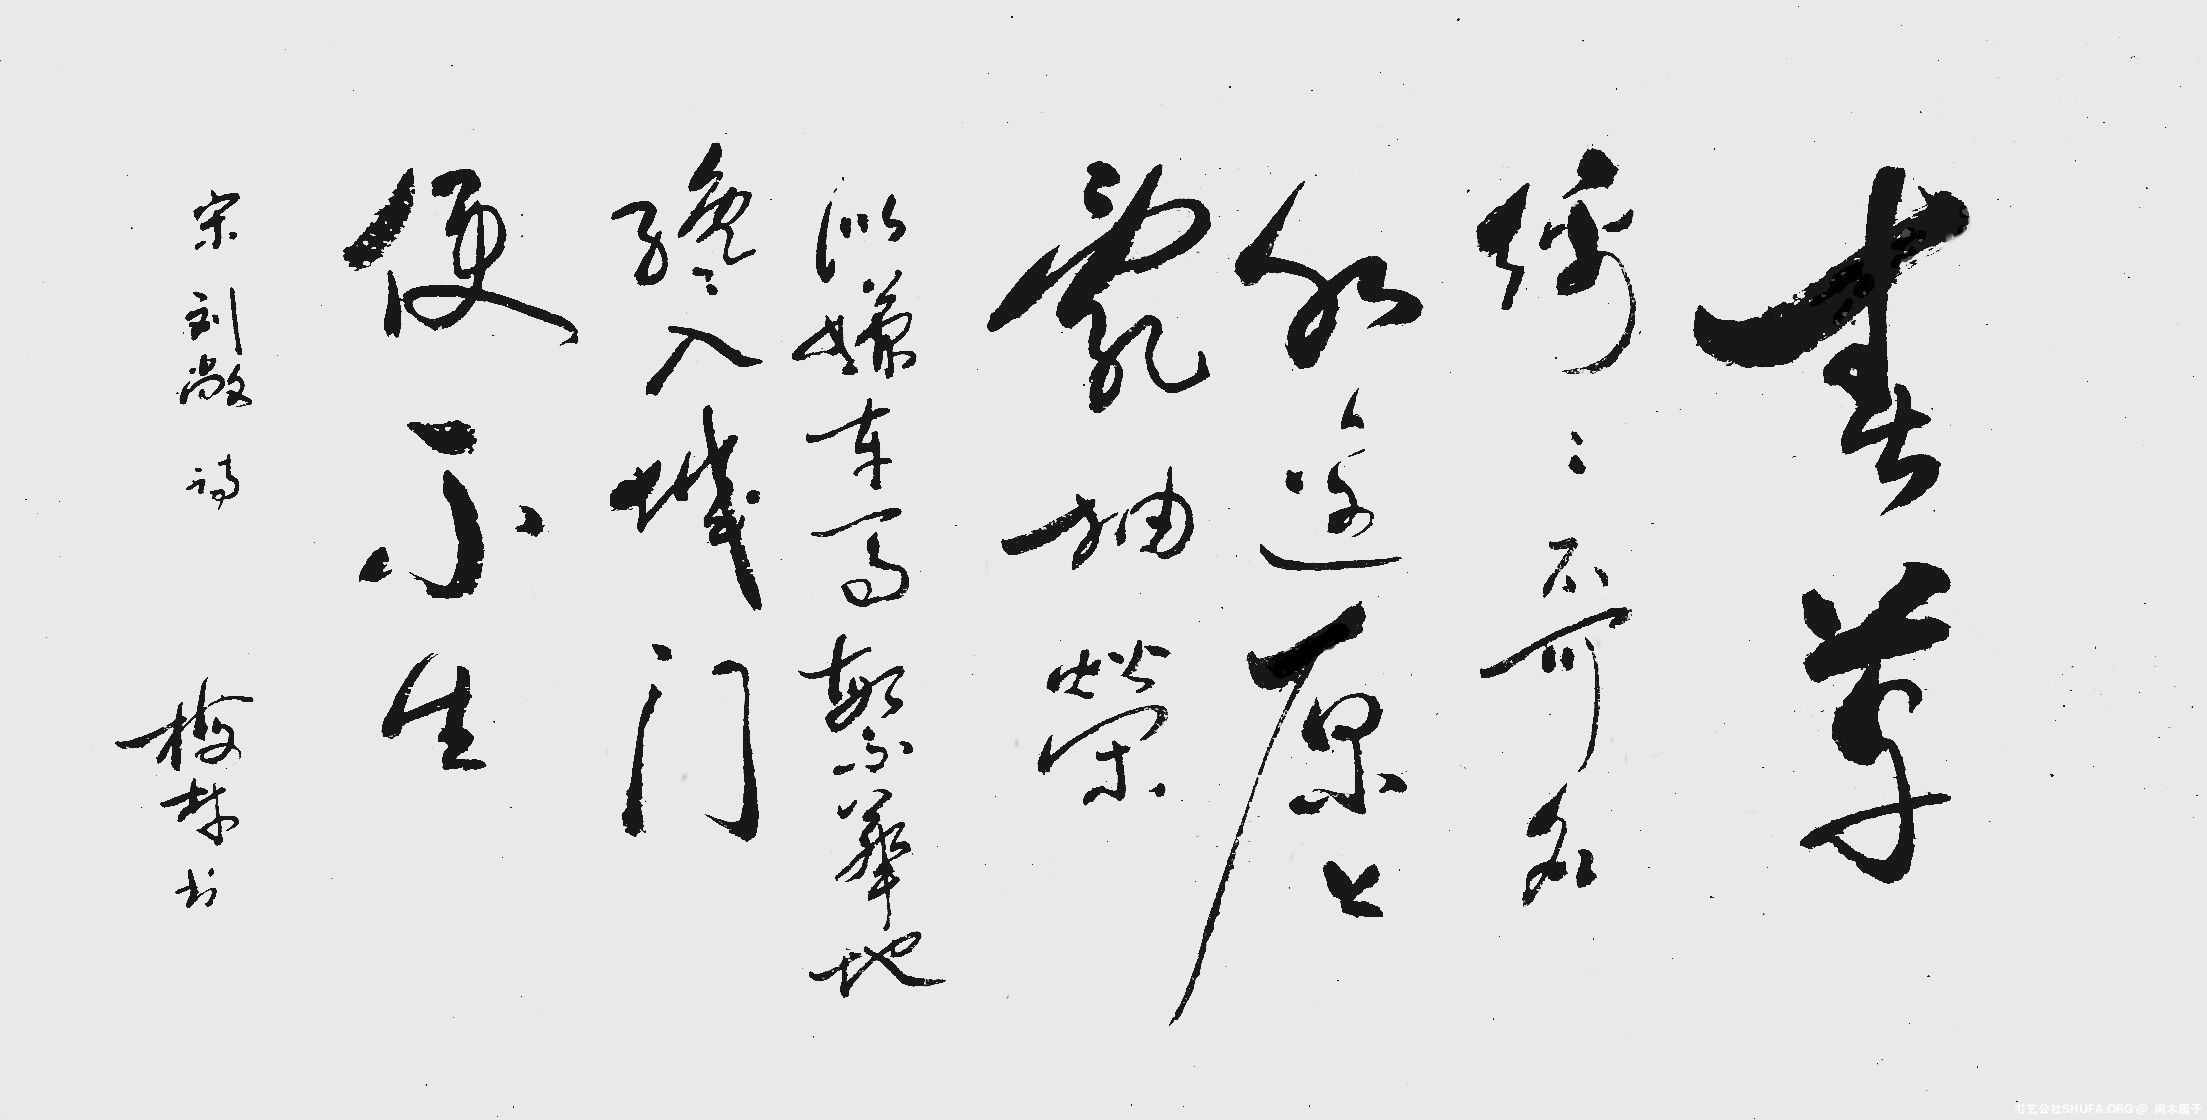 春草
綿〻不可名
水边原上
亂抽榮
似嫌车马繁華地
纔入城门
便不生
宋 刘敞 诗 梅林书
书艺公社SHUFA.ORG @ 闲木园子